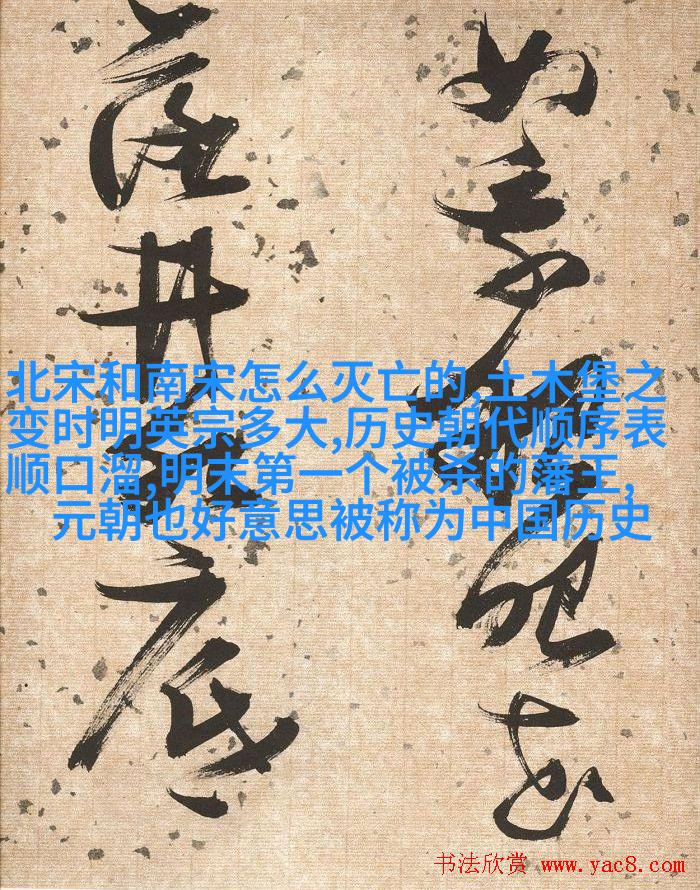 如
落井底
北宋和南宋怎么灭亡的,土木堡之
变时明英宗多大,历史朝代顺序表
顺口溜,明末第一个被杀的藩王,
元朝也好意思被称为中国历史
书法欣赏 www.yac8.com